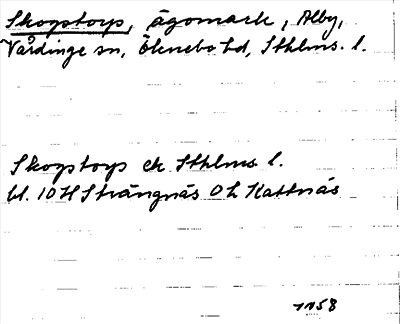 Skogstorp, ägomark, Alby,
Vårdinge sn, Öknebo hd, Sthlms. l.
Skogstorp ek Sthlms l.
bl. 10 H Strängnäs 0 h Kattnäs
1958